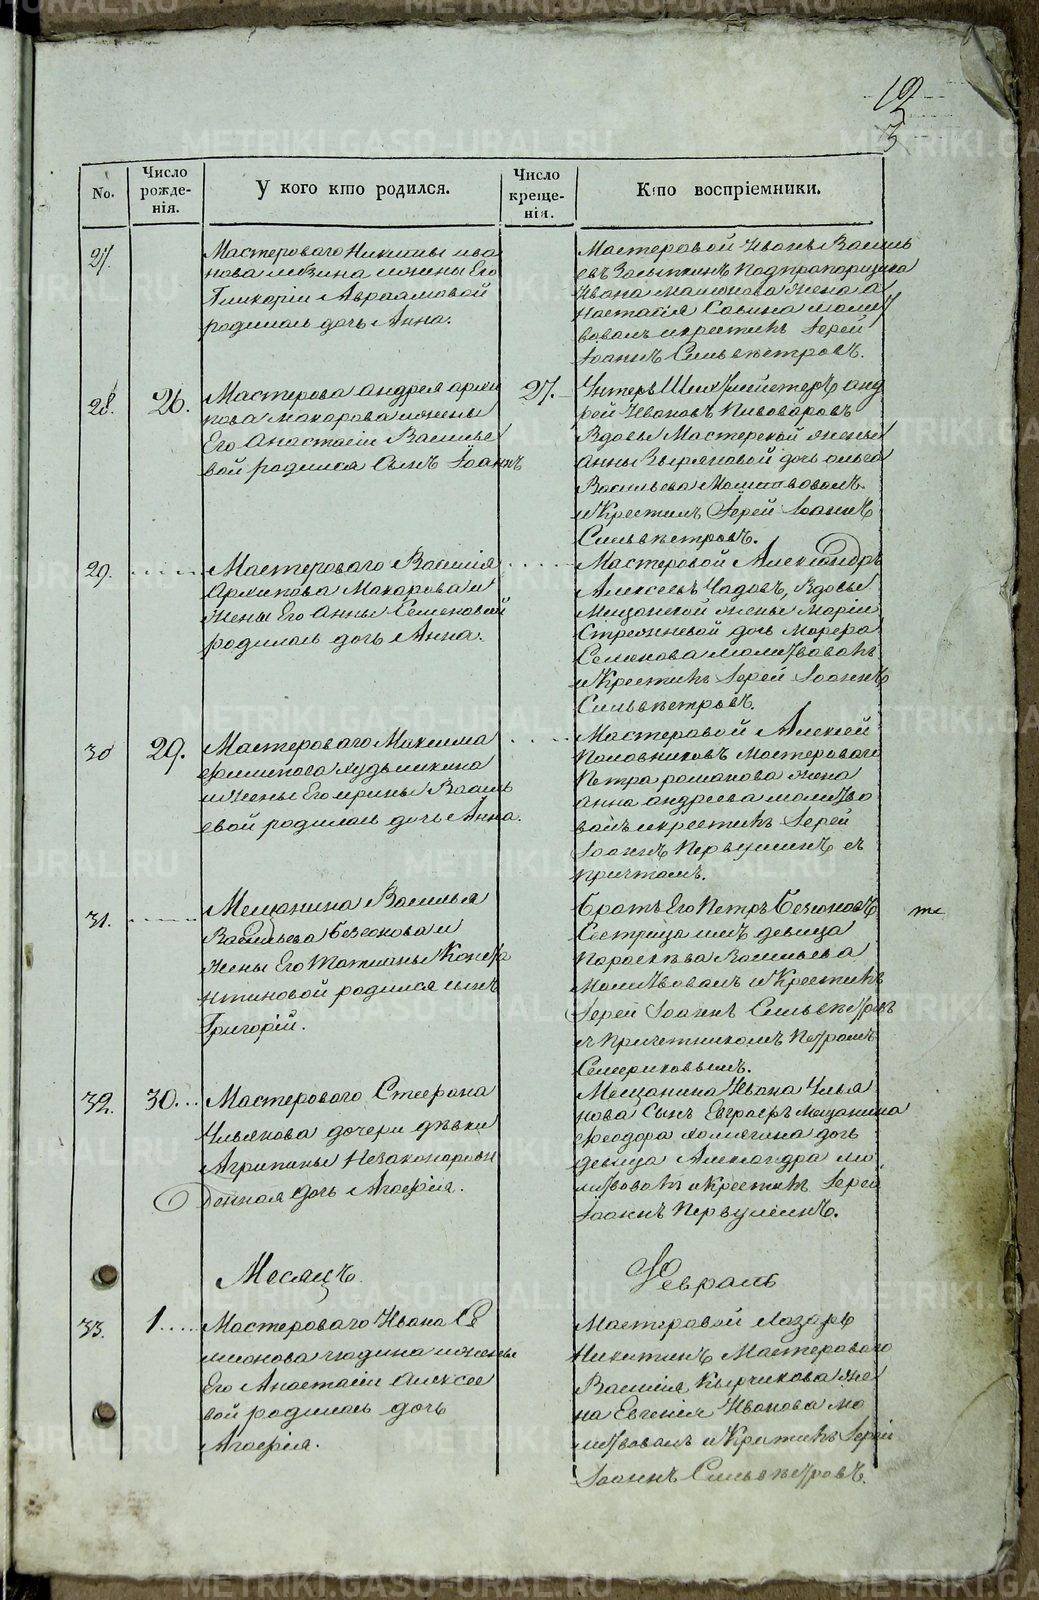 12
3
No.
Число рожде-нія.
У кого кто родился.
Число креще-нія.
Кто воспріемники.
27.
Мастероваго Никиты ива
нова и жены Его
Гликеріи Авраамовой
родилась дочь Анна.
Мастеровой Иванъ Василь
евъ Подпрапорщика
Ивана жена а
настасія Савина молит
вовалъ и крестилъ Іерей
Іоаннъ Сильвестровъ.
28.
26.
Мастерова андрея архи
пова макарова и жены
Его Анастасіи Василье
вой родился Сынъ Іоаннъ
27.
Унтеръ Шихтмейстеръ анд
рей Ивановъ Пивоваровъ
Вдовы Мастерской жены
анны Зыряновой дочь ольга
Васильева Молитвовалъ
и Крестилъ Іерей Іоаннъ
Сильвестровъ.
29.
Мастероваго Василія
Архипова Макарова и
жены Его Анны Семеновой
родилась дочь Анна.
Мастеровой Александръ
Алексеевъ Чадовъ, Вдовы
Мещанской жены Маріи
Стрежневой дочь Марфа
Семенова молитвовалъ
и Крестилъ Іерей Іоаннъ
Сильвестровъ.
30
29.
Мастероваго Максима
филипова кудьминина
и жены Его ирины Василь
евой родилась дочь Анна.
Мастеровой Алексей
Половниковъ мастероваго
Петра романова жена
анна андреева молитво
валъ и крестилъ Іерей
Іоаннъ Первушинъ съ
причтомъ.
31.
Мещанина Василья
Васильева безсонова и
жены Его Татианы Конста
нтиновой родился сынъ
Григорій.
братъ Его Петръ безсоновъ
Сестрица имъ девица
Параскѣва Васильева
Молитвовалъ и Крестилъ
Іерей Іоаннъ Сильвестровъ
съ причетникомъ Петромъ
Семериковымъ.
32.
30.
Мастероваго Стефана
Ульянова дочери дѣвки
Агрипины Незаконорож
денная дочь Агафія.
Мещанина Ивана Улья
нова Сынъ Евграфъ Мещанина
феодора холмгина дочь
девица Александра мо
литвовалъ и Крестилъ Іерей
Іоаннъ Первушинъ.
Месяцъ
Февраль
33.
1.
Мастероваго Ивана Се
мионова гладина и жены
Его Анастасіи алексее
вой родилась дочь
Агафія.
Мастеровой Лазарь
Никитинъ Мастероваго
Василія Кырчикова же
на Евгенія Иванова мо
литвовалъ и Крестилъ Іерей
Іоаннъ Сильвестровъ.
METRIKI.GASO-URAL.RU